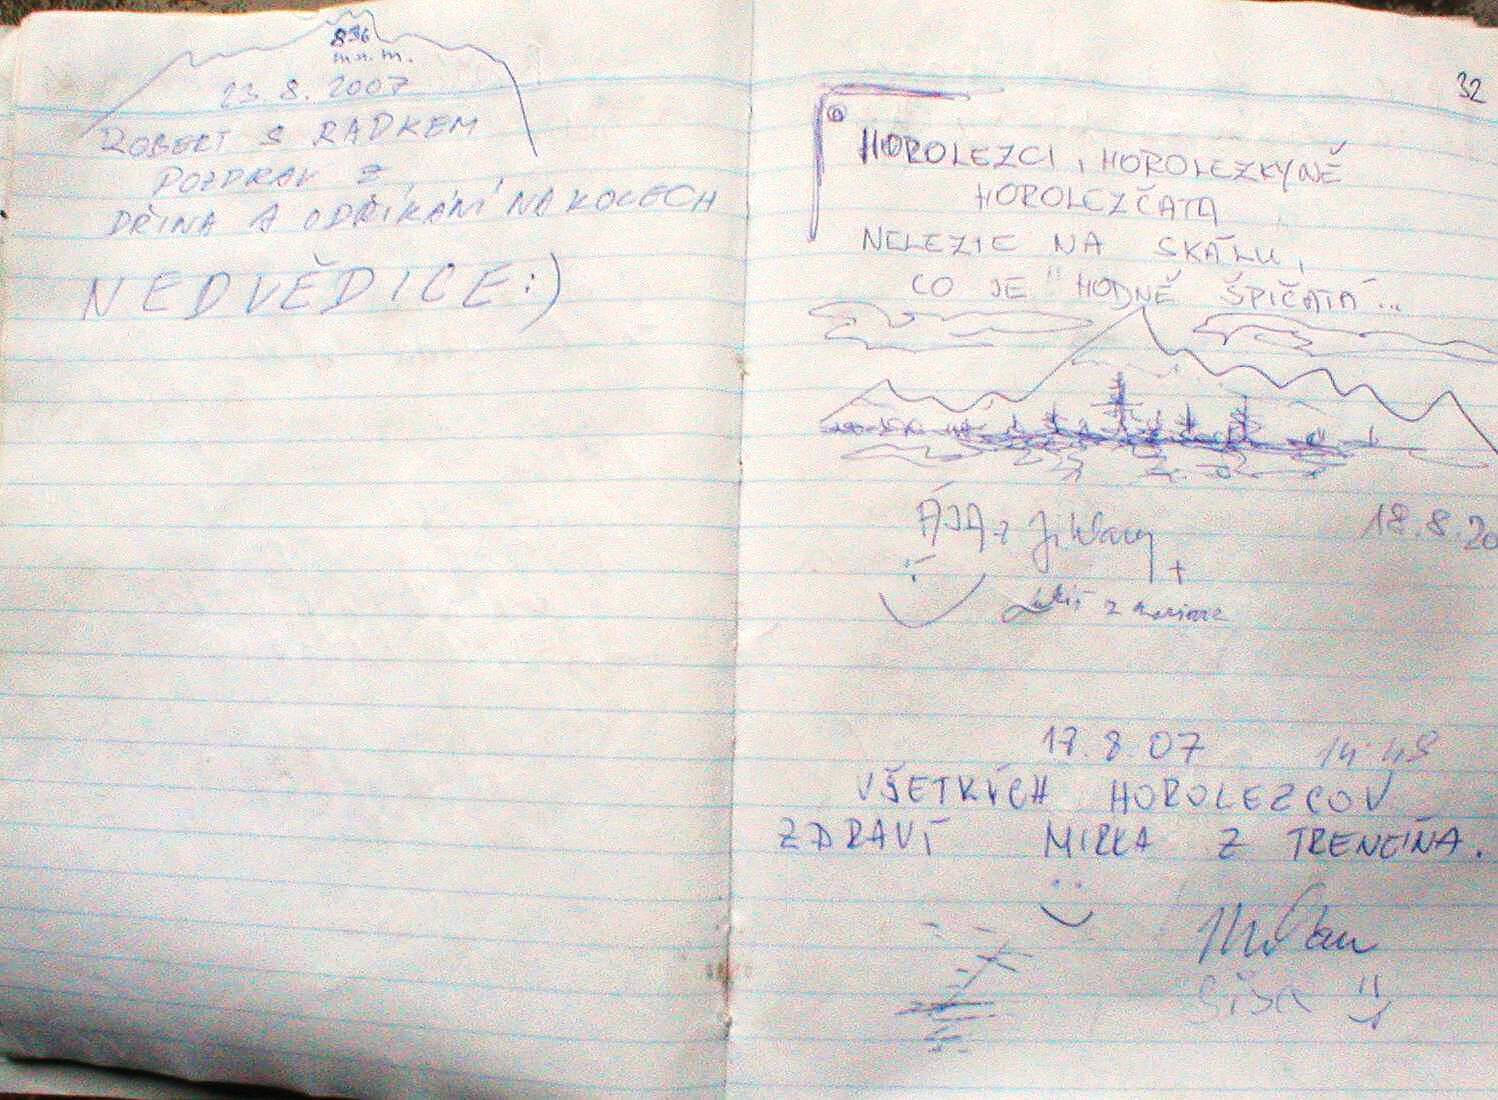 836
m.n.m.
23.8.2007
ROBERT S RADKEM
POZDRAV Z
DŘINA A ODŘÍKÁNÍ NA KOLECH
NEDVĚDICE:)
32
HOROLEZCI, HOROLEZKYNĚ
HOROLEZČATA
NELEZTE NA SKÁLU,
CO JE HODNĚ ŠPIČATÁ...
ÁJA z Jihlavy
18.8.20
+
z
17.8.07 14:49
VŠETKÝCH HOROLEZCOV
ZDRAVÍ MIRKA Z TRENČÍNA.
Milan